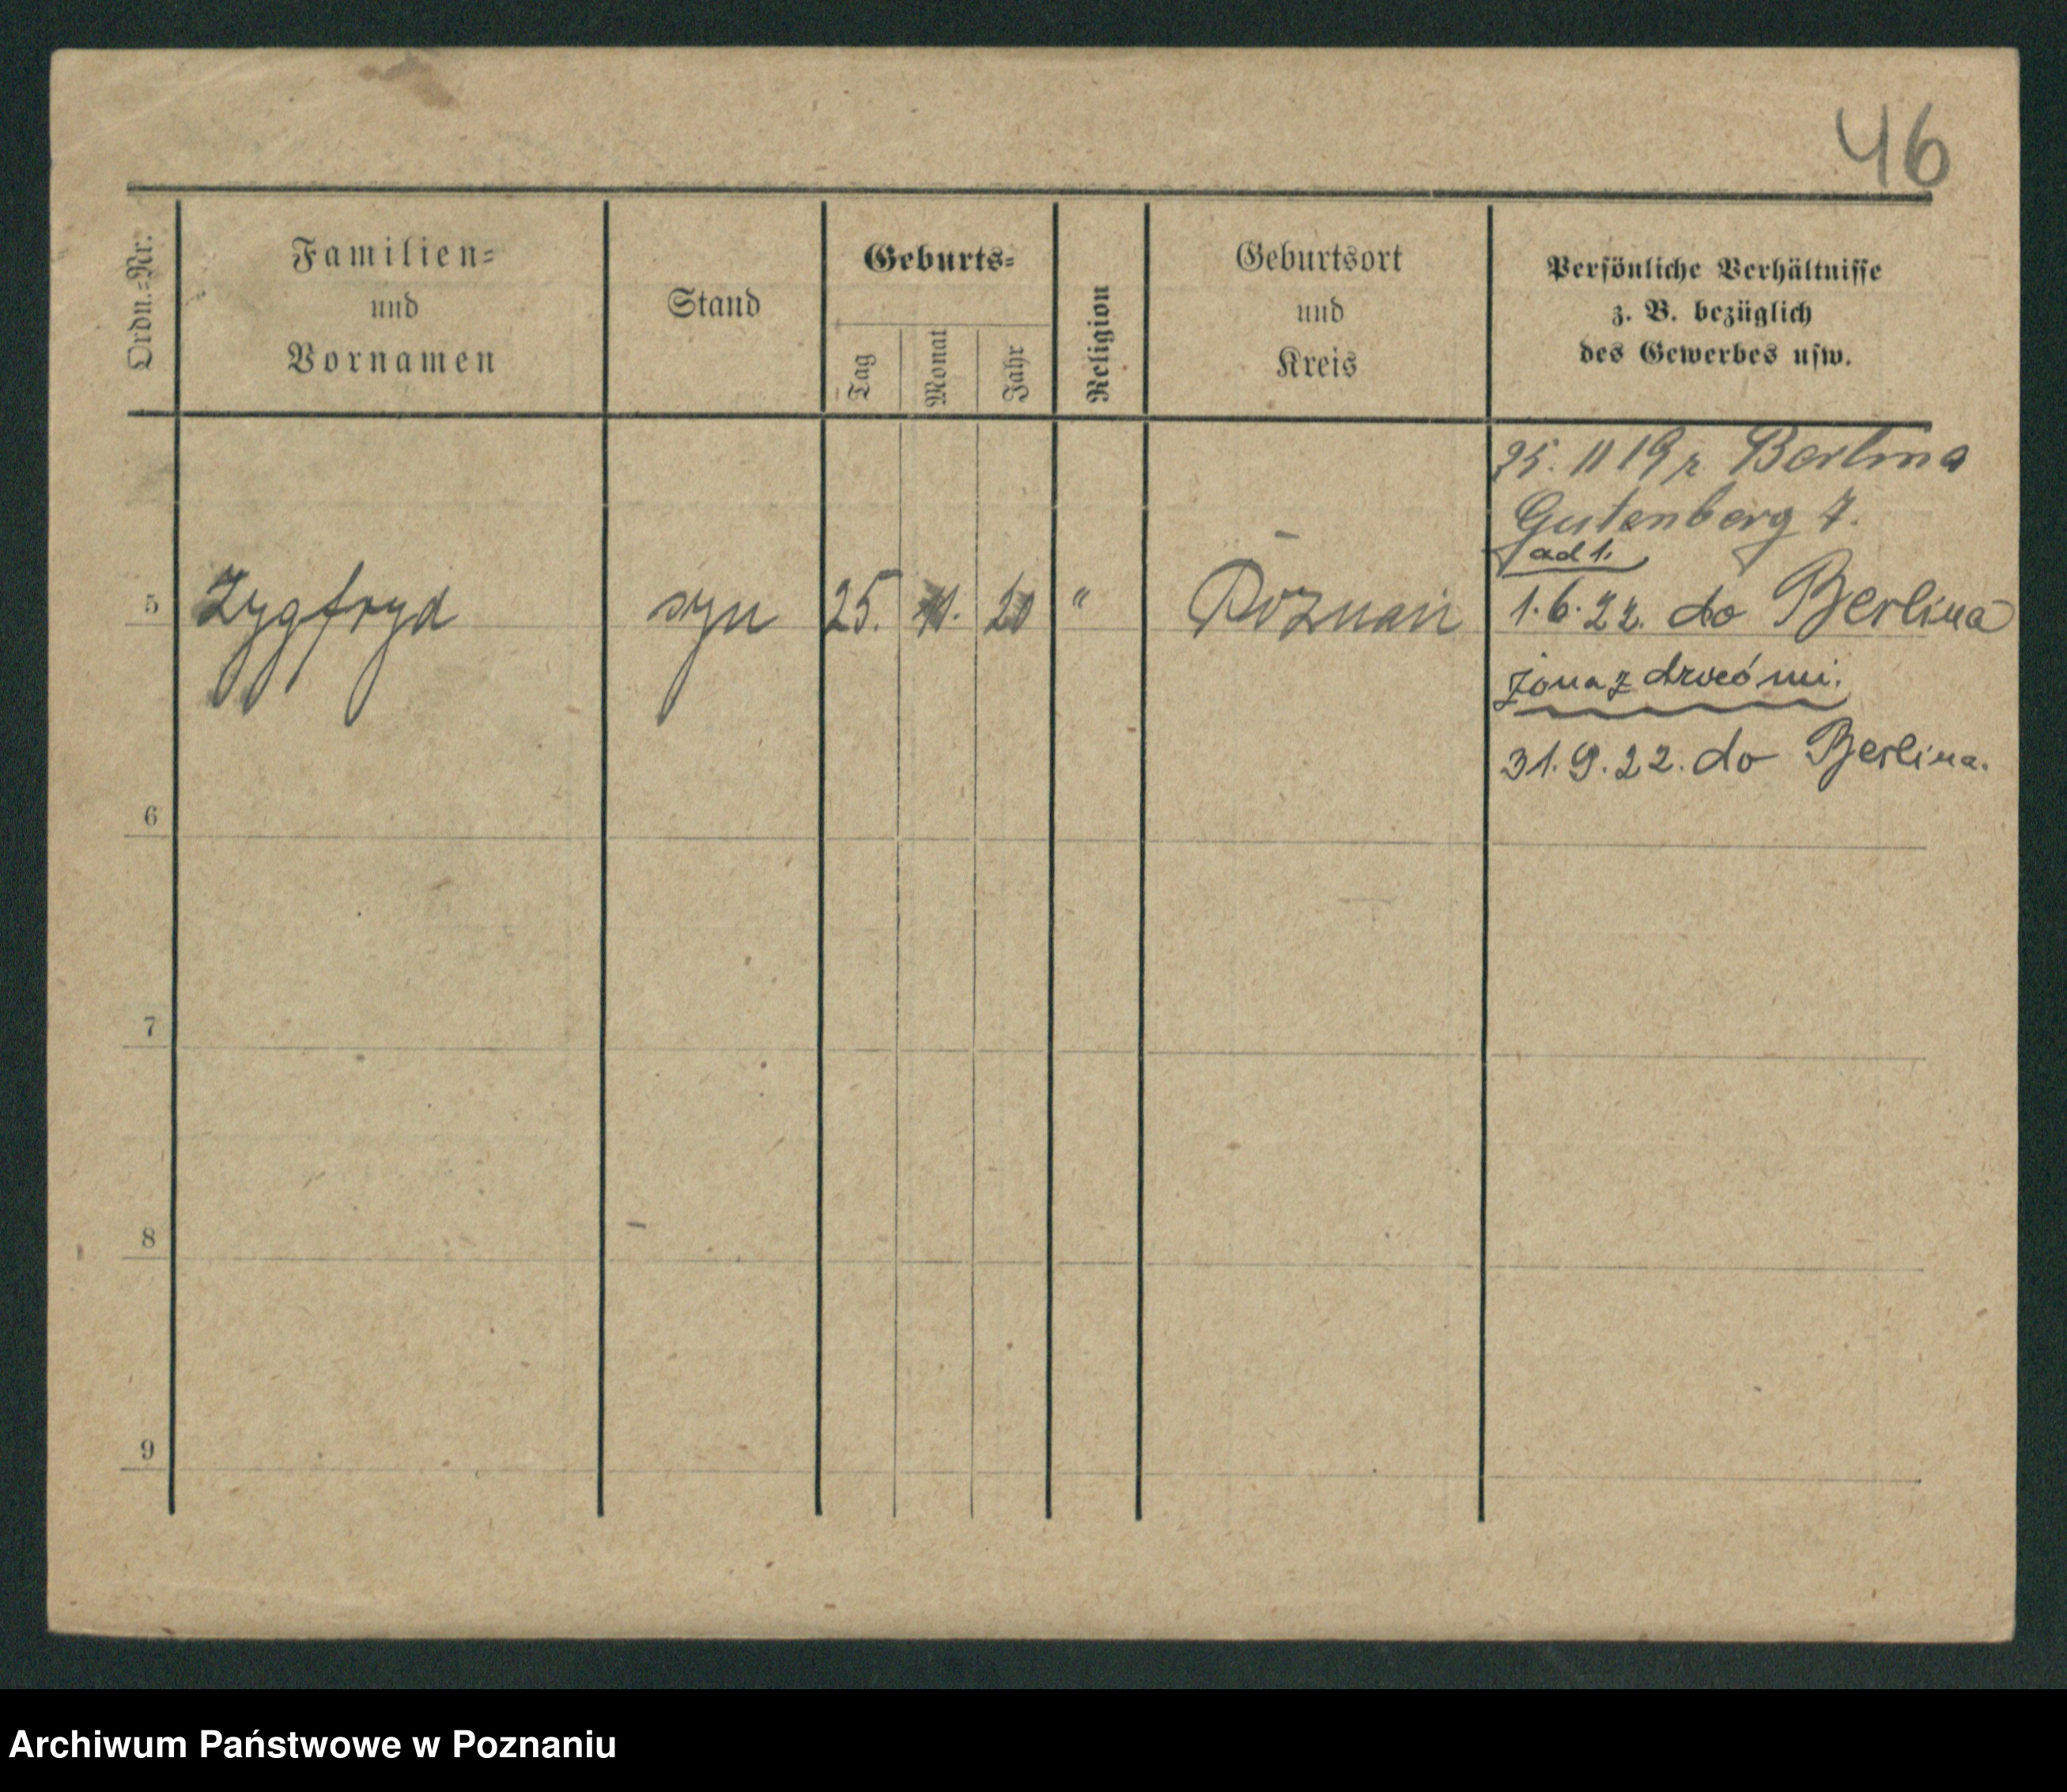 46
Ordn.-Nr.
Familien-
und
Vornamen
Stand
Geburts-
Tag
Monat
Jahr
Religion
Geburtsort
und
Kreis
Persönliche Verhältnisse
z. B. bezüglich
des Gewerbes usw.
25. 11 19 r. Berlina
Gutenberg 7.
ad 1.
5 Zygfryd syn 25. 11. 20 " Poznań 1. 6. 22. do Berlina
żona z dziećmi.
31. 9. 22. do Berlina.
6
7
8
9
Archiwum Państwowe w Poznaniu